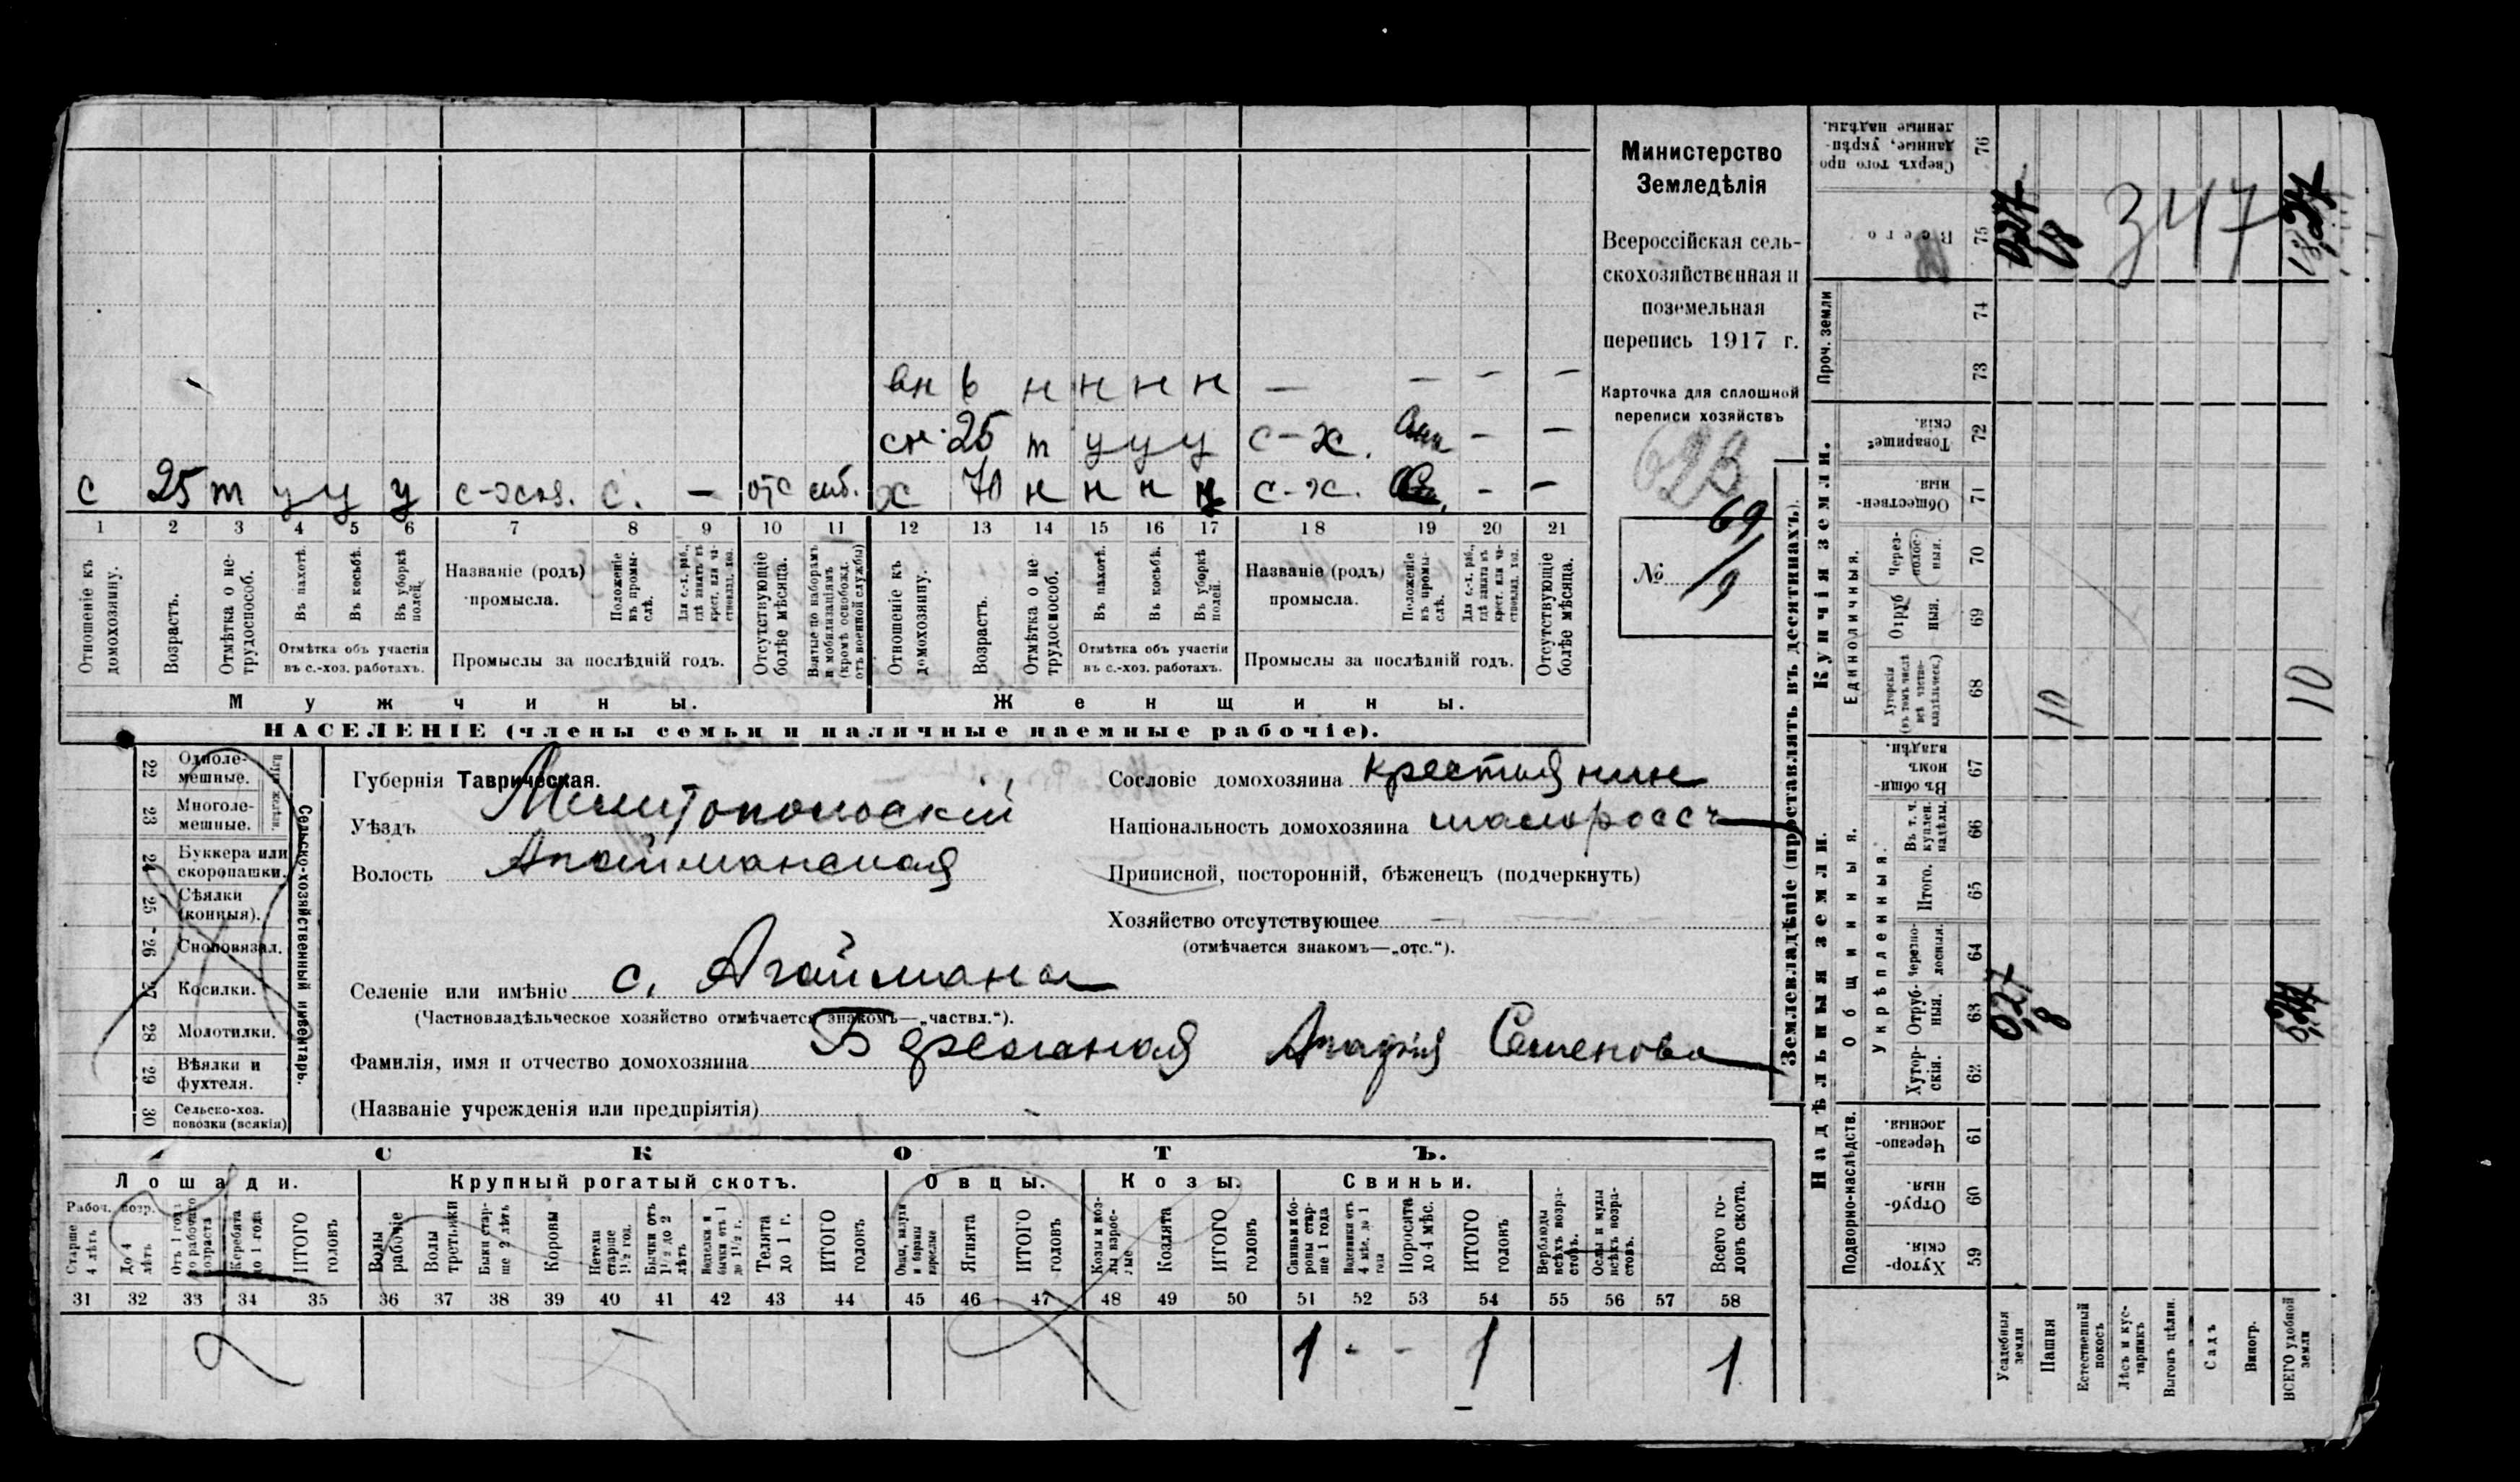 вн 6 н н н н — — — —
сн. 25 т у у у с-х. — —
с 25 т у у у с-хоз. с. — отс х 70 н н н н с-х. — —
1 2 3 4 5 6 7 8 9 10 11 12 13 14 15 16 17 18 19 20 21
Отношеніе къ домохозяину.
Возрастъ.
Отмѣтка о нетрудоспособ.
Въ пахотѣ.
Въ косьбѣ.
Въ уборкѣ полей.
Отмѣтка объ участіи
въ с.-хоз. работахъ.
Названіе (родъ)
промысла.
Положеніе въ промыслѣ.
Для с.-х. раб., гдѣ занятъ въ крест. или частновлад. хоз.
Промыслы за послѣдній годъ.
Отсутствующіе болѣе мѣсяца.
Взятые по наборамъ и мобилизаціямъ (кромѣ освобожд. отъ военной службы)
Отношеніе къ домохозяину.
Возрастъ.
Отмѣтка о нетрудоспособ.
Въ пахотѣ.
Въ косьбѣ.
Въ уборкѣ полей.
Отмѣтка объ участіи
въ с.-хоз. работахъ.
Названіе (родъ)
промысла.
Положеніе въ промыслѣ.
Для с.-х. раб., гдѣ занята въ крест. или частновлад. хоз.
Промыслы за послѣдній годъ.
Отсутствующіе болѣе мѣсяца.
Мужчины. Женщины.
НАСЕЛЕНІЕ (члены семьи и наличные наемные рабочіе).
Министерство
Земледѣлія
Всероссійская сель-
скохозяйственная и
поземельная
перепись 1917 г.
Карточка для сплошной
переписи хозяйствъ
623
69
№ 19
22 Одноле-
мешные.
23 Многоле-
мешные.
24 Буккера или
скоропашки.
25 Сѣялки
(конныя).
26 Сноповязал.
27 Косилки.
28 Молотилки.
29 Вѣялки и
фухтеля.
30 Сельско-хоз.
повозки (всякія)
Сельско-хозяйственный инвентарь.
Губернія Таврическая.
Уѣздъ Мелитопольскій
Волость Агайманская
Селеніе или имѣніе с. Агаймана
(Частновладѣльческое хозяйство отмѣчается знакомъ—„частвл.“).
Фамилія, имя и отчество домохозяина Бережаная Агафія Семенова
(Названіе учрежденія или предпріятія) -
Сословіе домохозяина крестиянин
Національность домохозяина малороссъ
Приписной, посторонній, бѣженецъ (подчеркнуть)
Хозяйство отсутствующее —
(отмѣчается знакомъ—„отс.“).
СКОТЪ.
Лошади. Крупный рогатый скотъ. Овцы. Козы. Свиньи.
Рабоч. возр.
Старше 4 лѣтъ
До 4 лѣтъ
Отъ 1 года до рабочаго возраста
Жеребята до 1 года
ИТОГО головъ
Волы рабочіе
Волы третьяки
Быки старше 2 лѣтъ
Коровы
Нетели старше 1½ год.
Бычки отъ 1½ до 2 лѣтъ
Телки и бычки отъ 1 до 1½ г.
Телята до 1 г.
ИТОГО головъ
Овцы, валухи и бараны взрослые
Ягнята
ИТОГО головъ
Козы и козлы взрослые
Козлята
ИТОГО головъ
Свиньи и боровы старше 1 года
Подсвинки отъ 4 мѣс. до 1 года
Поросята до 4 мѣс.
ИТОГО головъ
Верблюды всѣхъ возрастовъ.
Ослы и мулы всѣхъ возрастовъ.
Всего головъ скота.
31 32 33 34 35 36 37 38 39 40 41 42 43 44 45 46 47 48 49 50 51 52 53 54 55 56 57 58
1 - - 1 1
Землевладѣніе (проставлять въ десятинахъ).
Надѣльныя земли. Купчія земли. Проч. земли
Подворно-наслѣдств.
Общинныя.
Укрѣпленныя.
Единоличныя.
59 Хуторскія.
60 Отрубныя.
61 Черезполосныя.
62 Хуторскія.
63 Отрубныя.
64 Черезполосныя.
65 Итого.
66 Въ т. ч. куплен. надѣлы.
67 Въ общинномъ владѣн.
68 Хуторскія (въ томъ числѣ всѣ частновладѣльческ.)
69 Отрубныя.
70 Черезполосныя.
71 Общественныя.
72 Товарищескія.
73
74
75 Всего
76 Сверхъ того проданные, укрѣпленные надѣлы.
Усадебныя земли
Пашня
Естественный покосъ
Лѣсъ и кустарникъ
Выгонъ цѣлин.
Садъ
Виногр.
ВСЕГО удобной земли
027
18
347
18,27
10
10
027
8
8,27